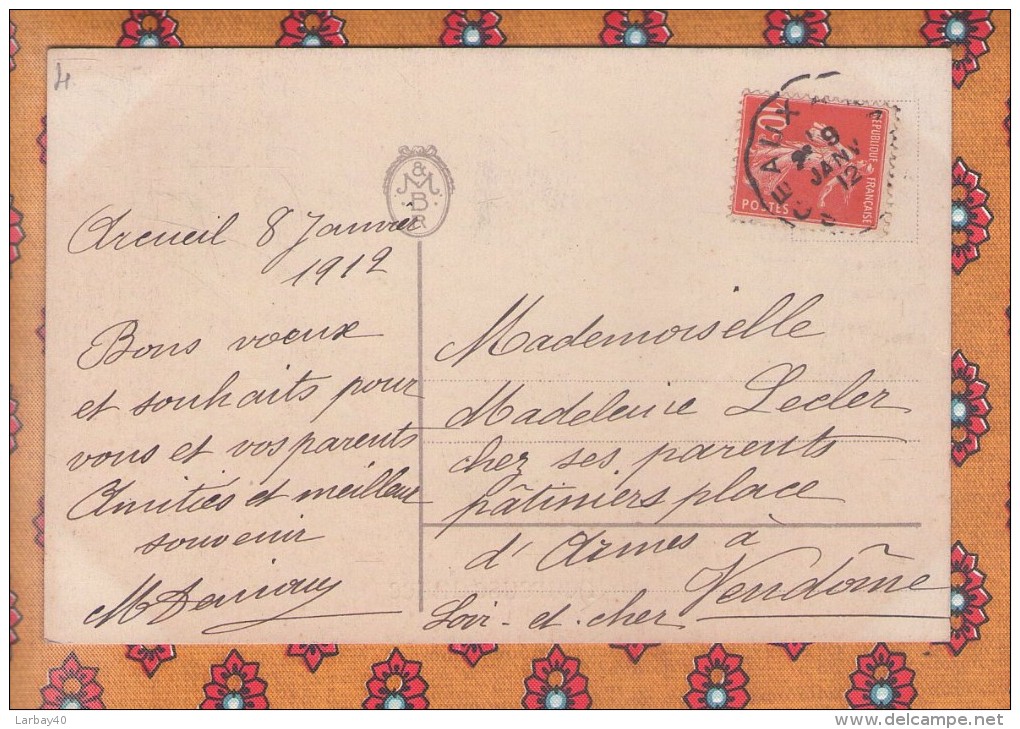 4
M & M
B
R
Arcueil 8 Janvier
1912
Bons voeux
et souhaits pour
vous et vos parents
Amitiés et meilleur
souvenir
10
REPUBLIQUE FRANÇAISE
POSTES
EAUX
9
JANV
12
Mademoiselle
Madeleine Lecler
chez ses parents
pâtiniers place
d'Armes à
Vendôme
Loir-et-cher
Larbay40
www.delcampe.net